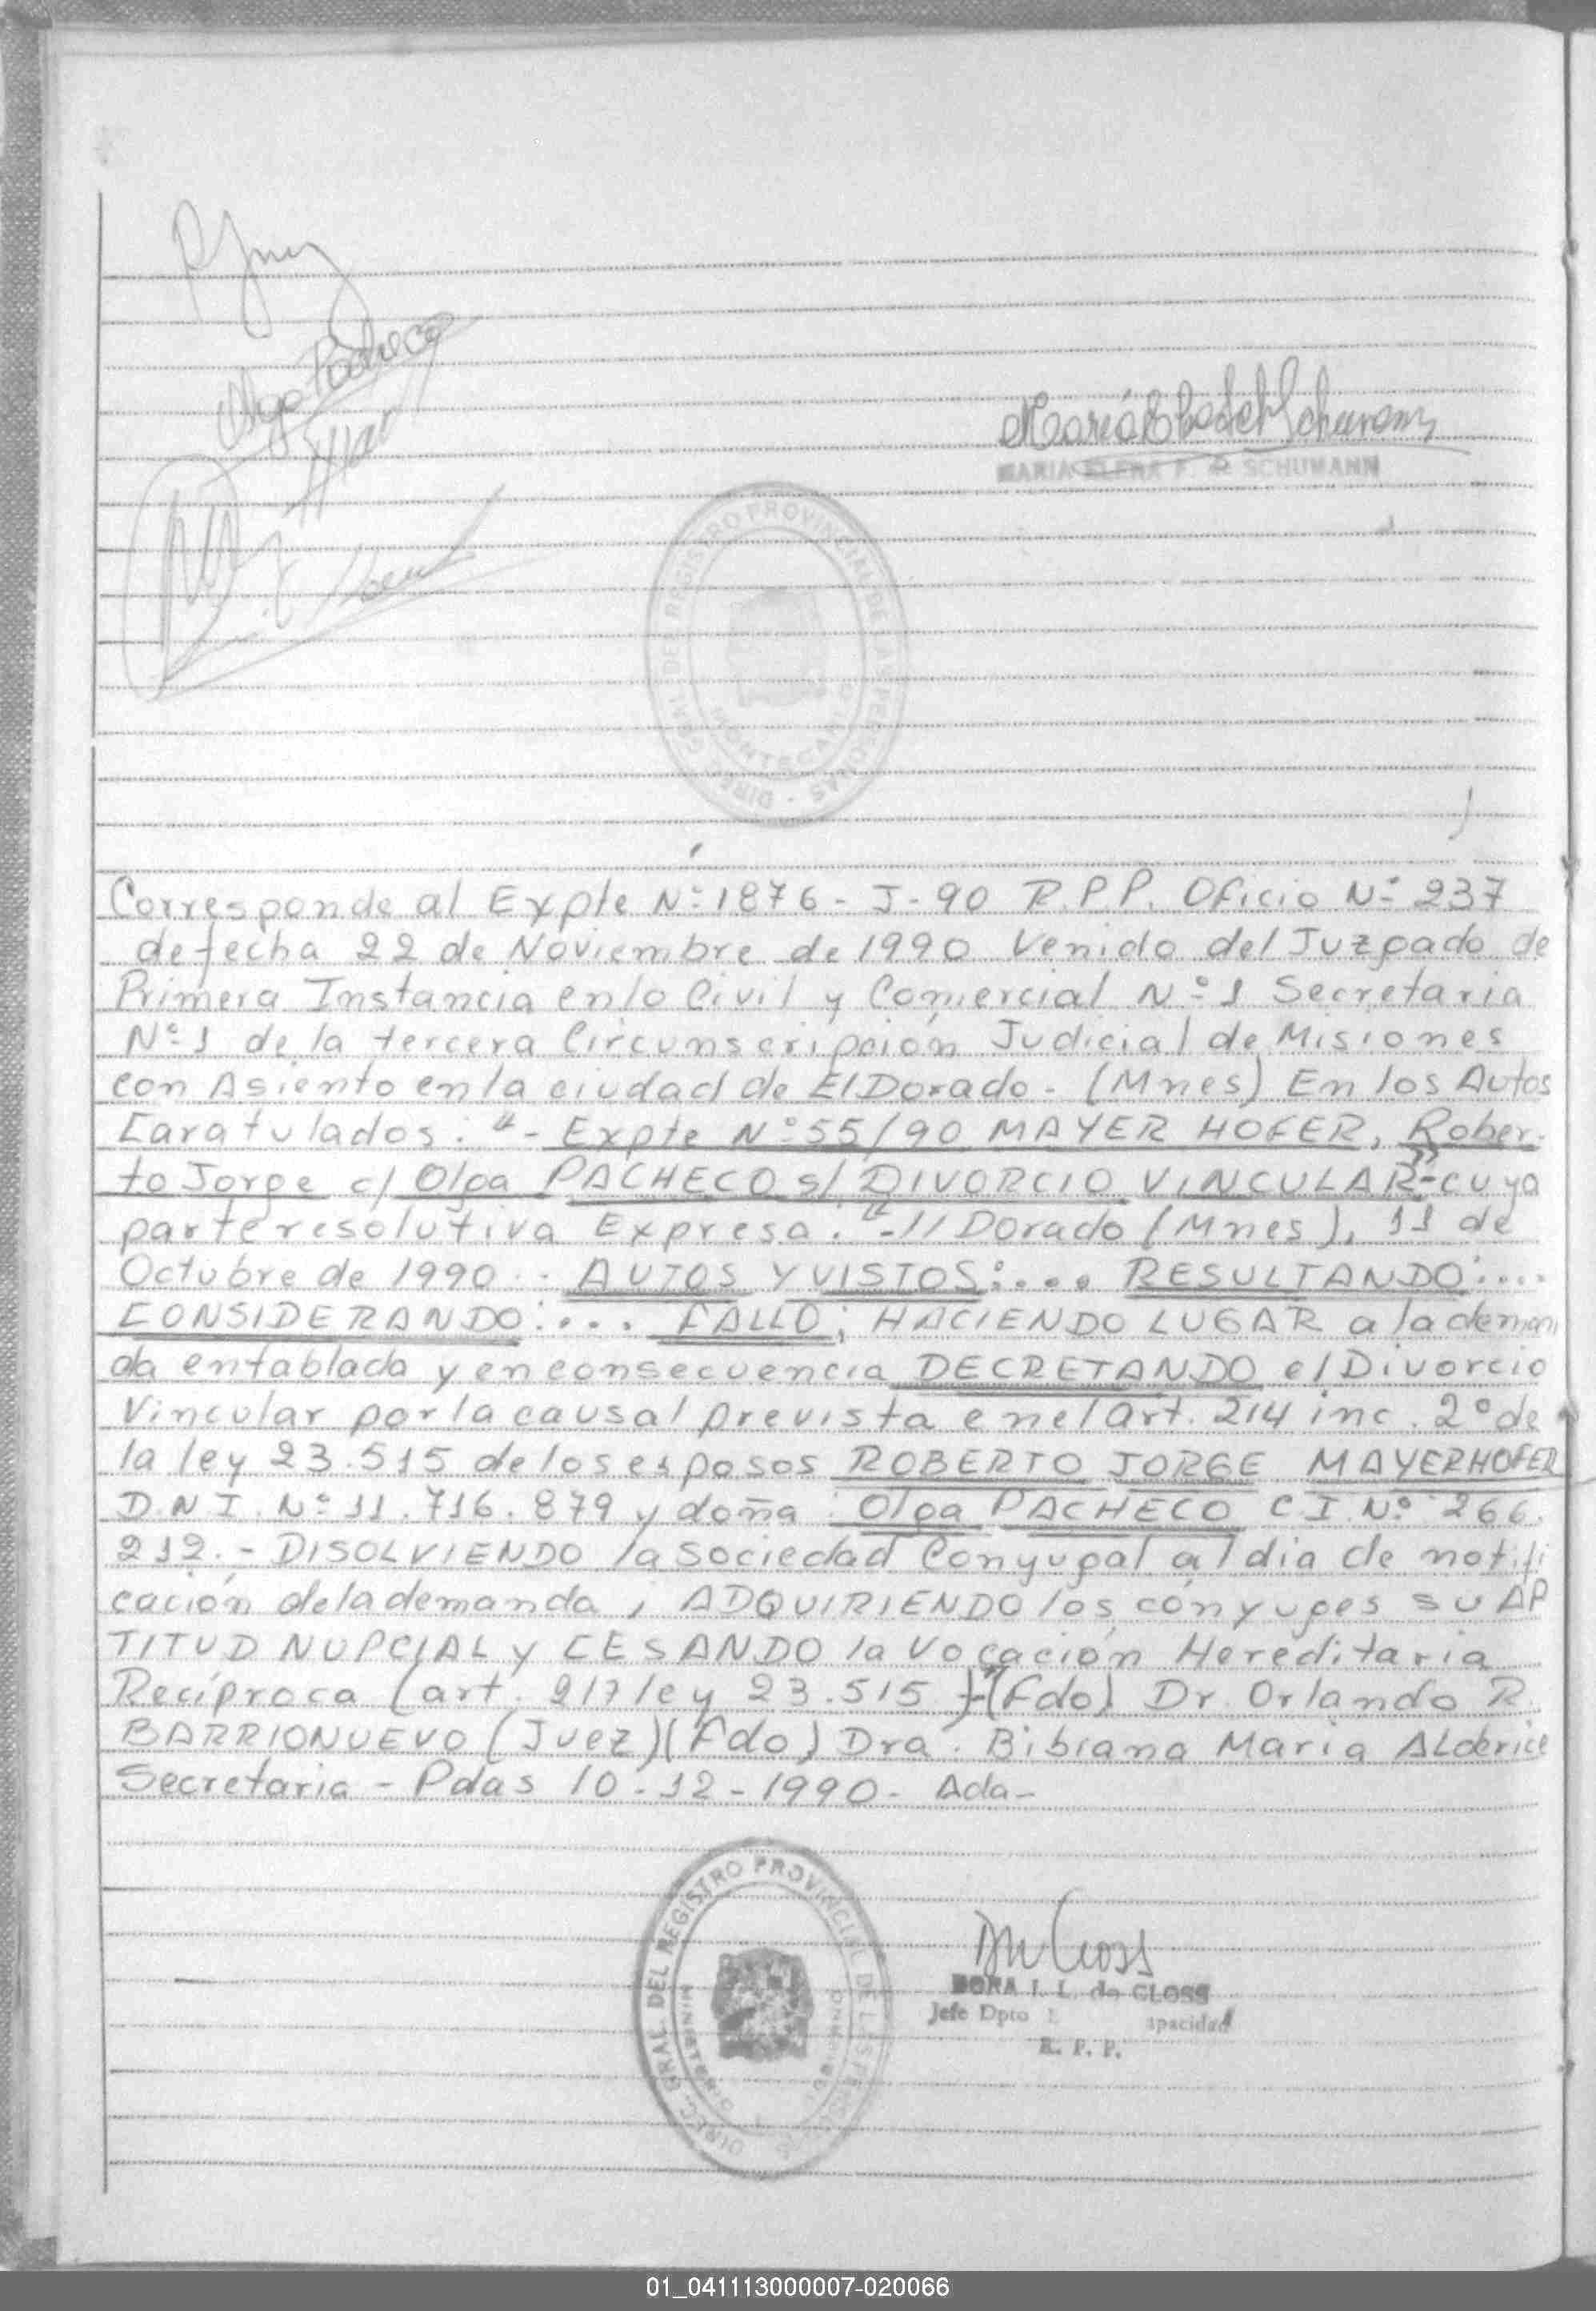 Olga Pacheco
MARIA ELENA F. D. SCHUMANN
DIREC. GRAL. DEL REGISTRO PROVINCIAL DE LAS PERSONAS
MONTECARLO
Corresponde al Expte Nº 1876 - J - 90 R.P.P. Oficio Nº 237
de fecha 22 de Noviembre de 1990 Venido del Juzgado de
Primera Instancia en lo Civil y Comercial Nº 1 Secretaria
Nº 1 de la tercera Circunscripción Judicial de Misiones
con Asiento en la ciudad de ElDorado - (Mnes) En los Autos
Caratulados: "- Expte Nº 55/90 MAYER HOFER, Rober-
to Jorge c/ Olga PACHECO s/ DIVORCIO VINCULAR"- cuya
parte resolutiva Expresa: "- // Dorado (Mnes), 11 de
Octubre de 1990 - AUTOS Y VISTOS:.... RESULTANDO:....
CONSIDERANDO:.... FALLO; HACIENDO LUGAR a la deman
da entablada y en consecuencia DECRETANDO el Divorcio
Vincular por la causal prevista en el art. 214 inc. 2º de
la ley 23.515 de los esposos ROBERTO JORGE MAYERHOFER
D.N.I. Nº 11.716.879 y doña: Olga PACHECO C.I. Nº 266.
212.- DISOLVIENDO la sociedad Conyugal al dia de notifi
cación de la demanda, ADQUIRIENDO los cónyuges su AP
TITUD NUPCIAL y CESANDO la Vocación Hereditaria
Recíproca (art. 217 ley 23.515)-" (Fdo) Dr Orlando R.
BARRIONUEVO (Juez) (Fdo) Dra. Bibiana Maria ALderice
Secretaria - Pdas 10-12-1990- Ada-
DIREC. GRAL. DEL REGISTRO PROVINCIAL DE LAS PERSONAS
DORA I. L. de CLOSS
Jefe Dpto apacidad
R. P. P.
01_041113000007-020066